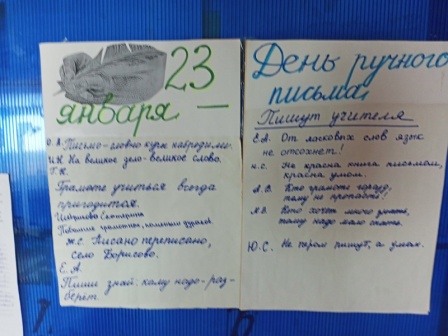 23
января —
О.А. Письмо – словно куры набродили.
И.К. На великое дело – великое слово.
Г.К.
Грамоте учиться всегда
пригодится.
Екатерина
ж.с. Писано переписано,
село Борисово.
Е.А.
Пиши знай: кому надо – раз-
берёт.
День ручного
письма
Пишут учителя
Е.А. От ласковых слов язык
не отсохнет!
Н.С. Не красна книга письмом,
красна умом.
А.В. Кто грамоте горазд,
тому не пропасть!
Л.В. Кто хочет много знать,
тому надо мало спать.
Ю.С. Не пером пишут, а умом.